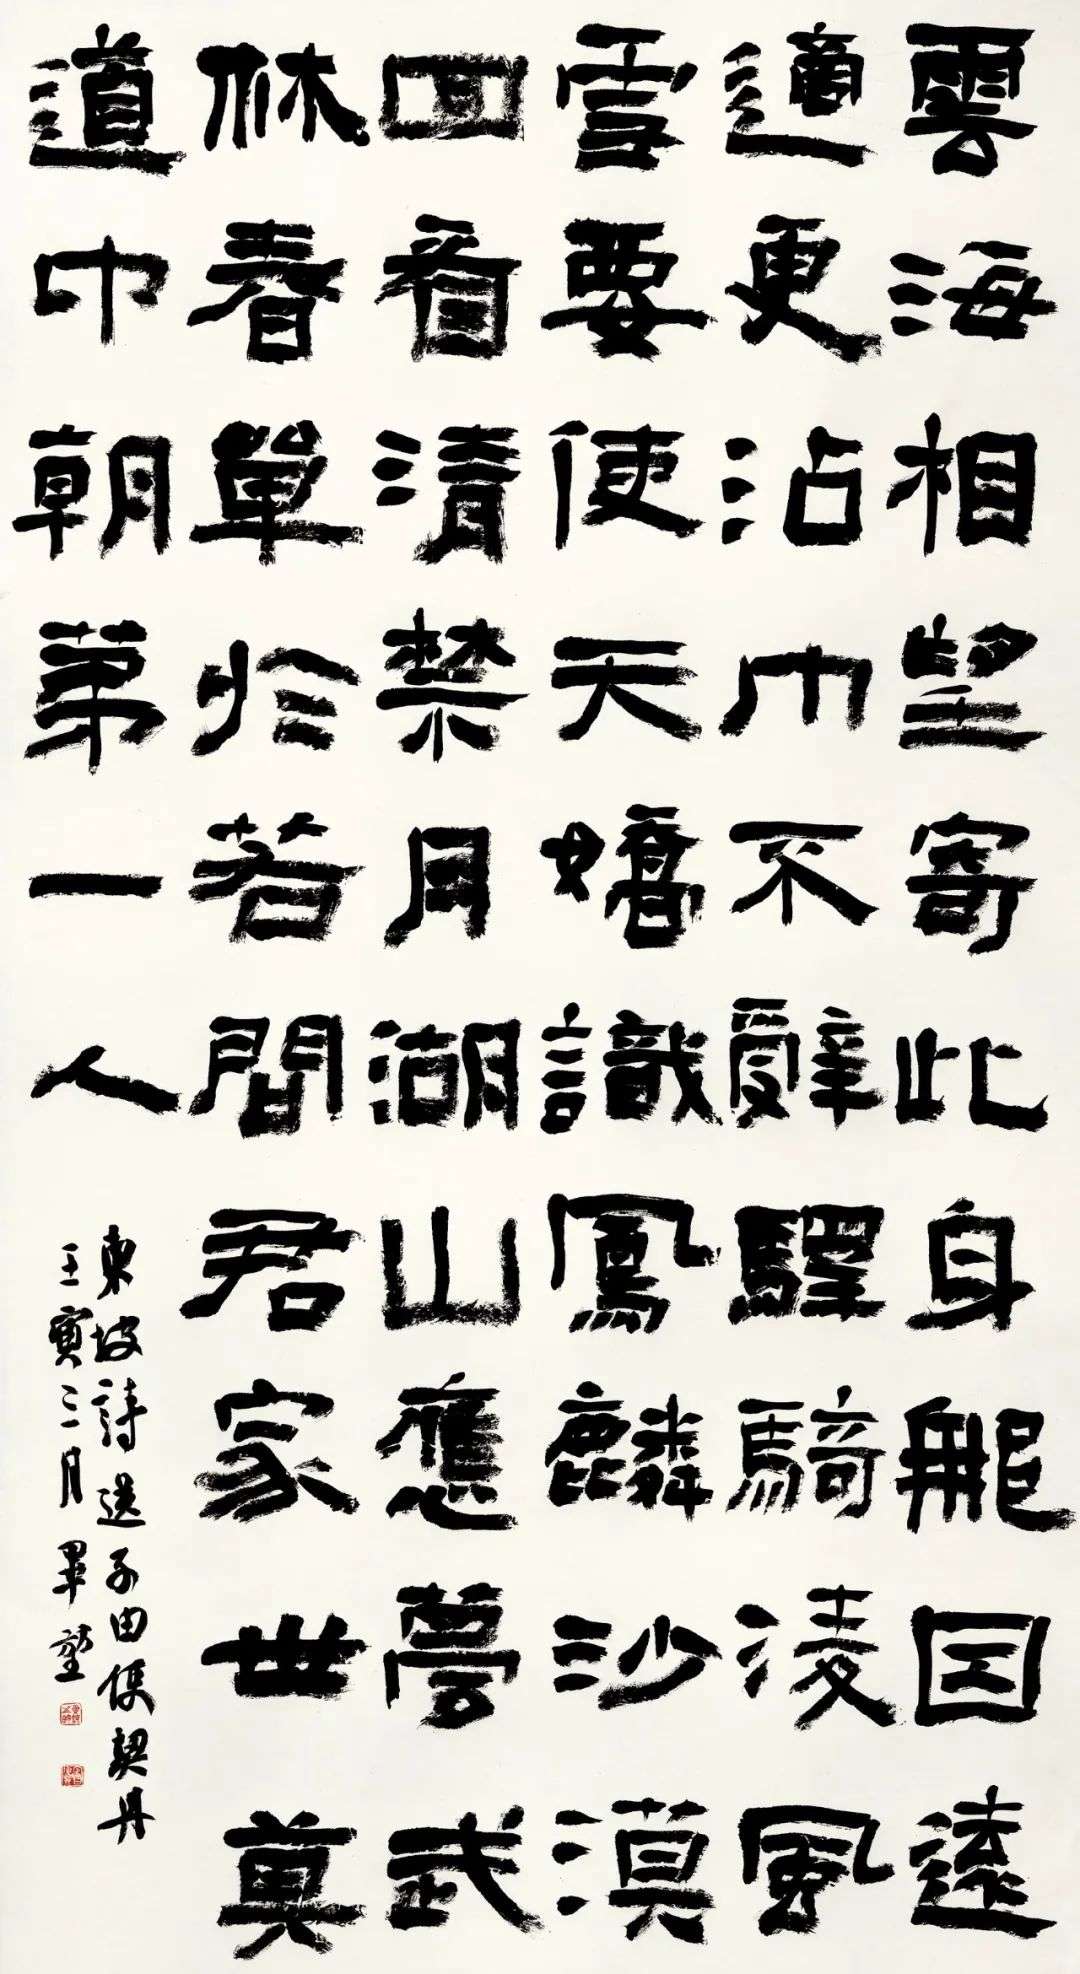 雲海相望寄此身那因遠
適更沾巾不辭驛騎淩風
雪要使天嬌識鳳麟沙漠
回看清禁月湖山應夢武
林春單於若問君家世莫
道中朝第一人
東坡詩送子由使契丹
壬寅三月